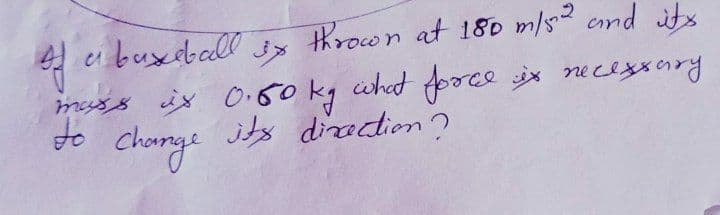 If a baseball is thrown at 180 m/s² and its
mass is 0.60 kg what force is necessary
to change its direction?